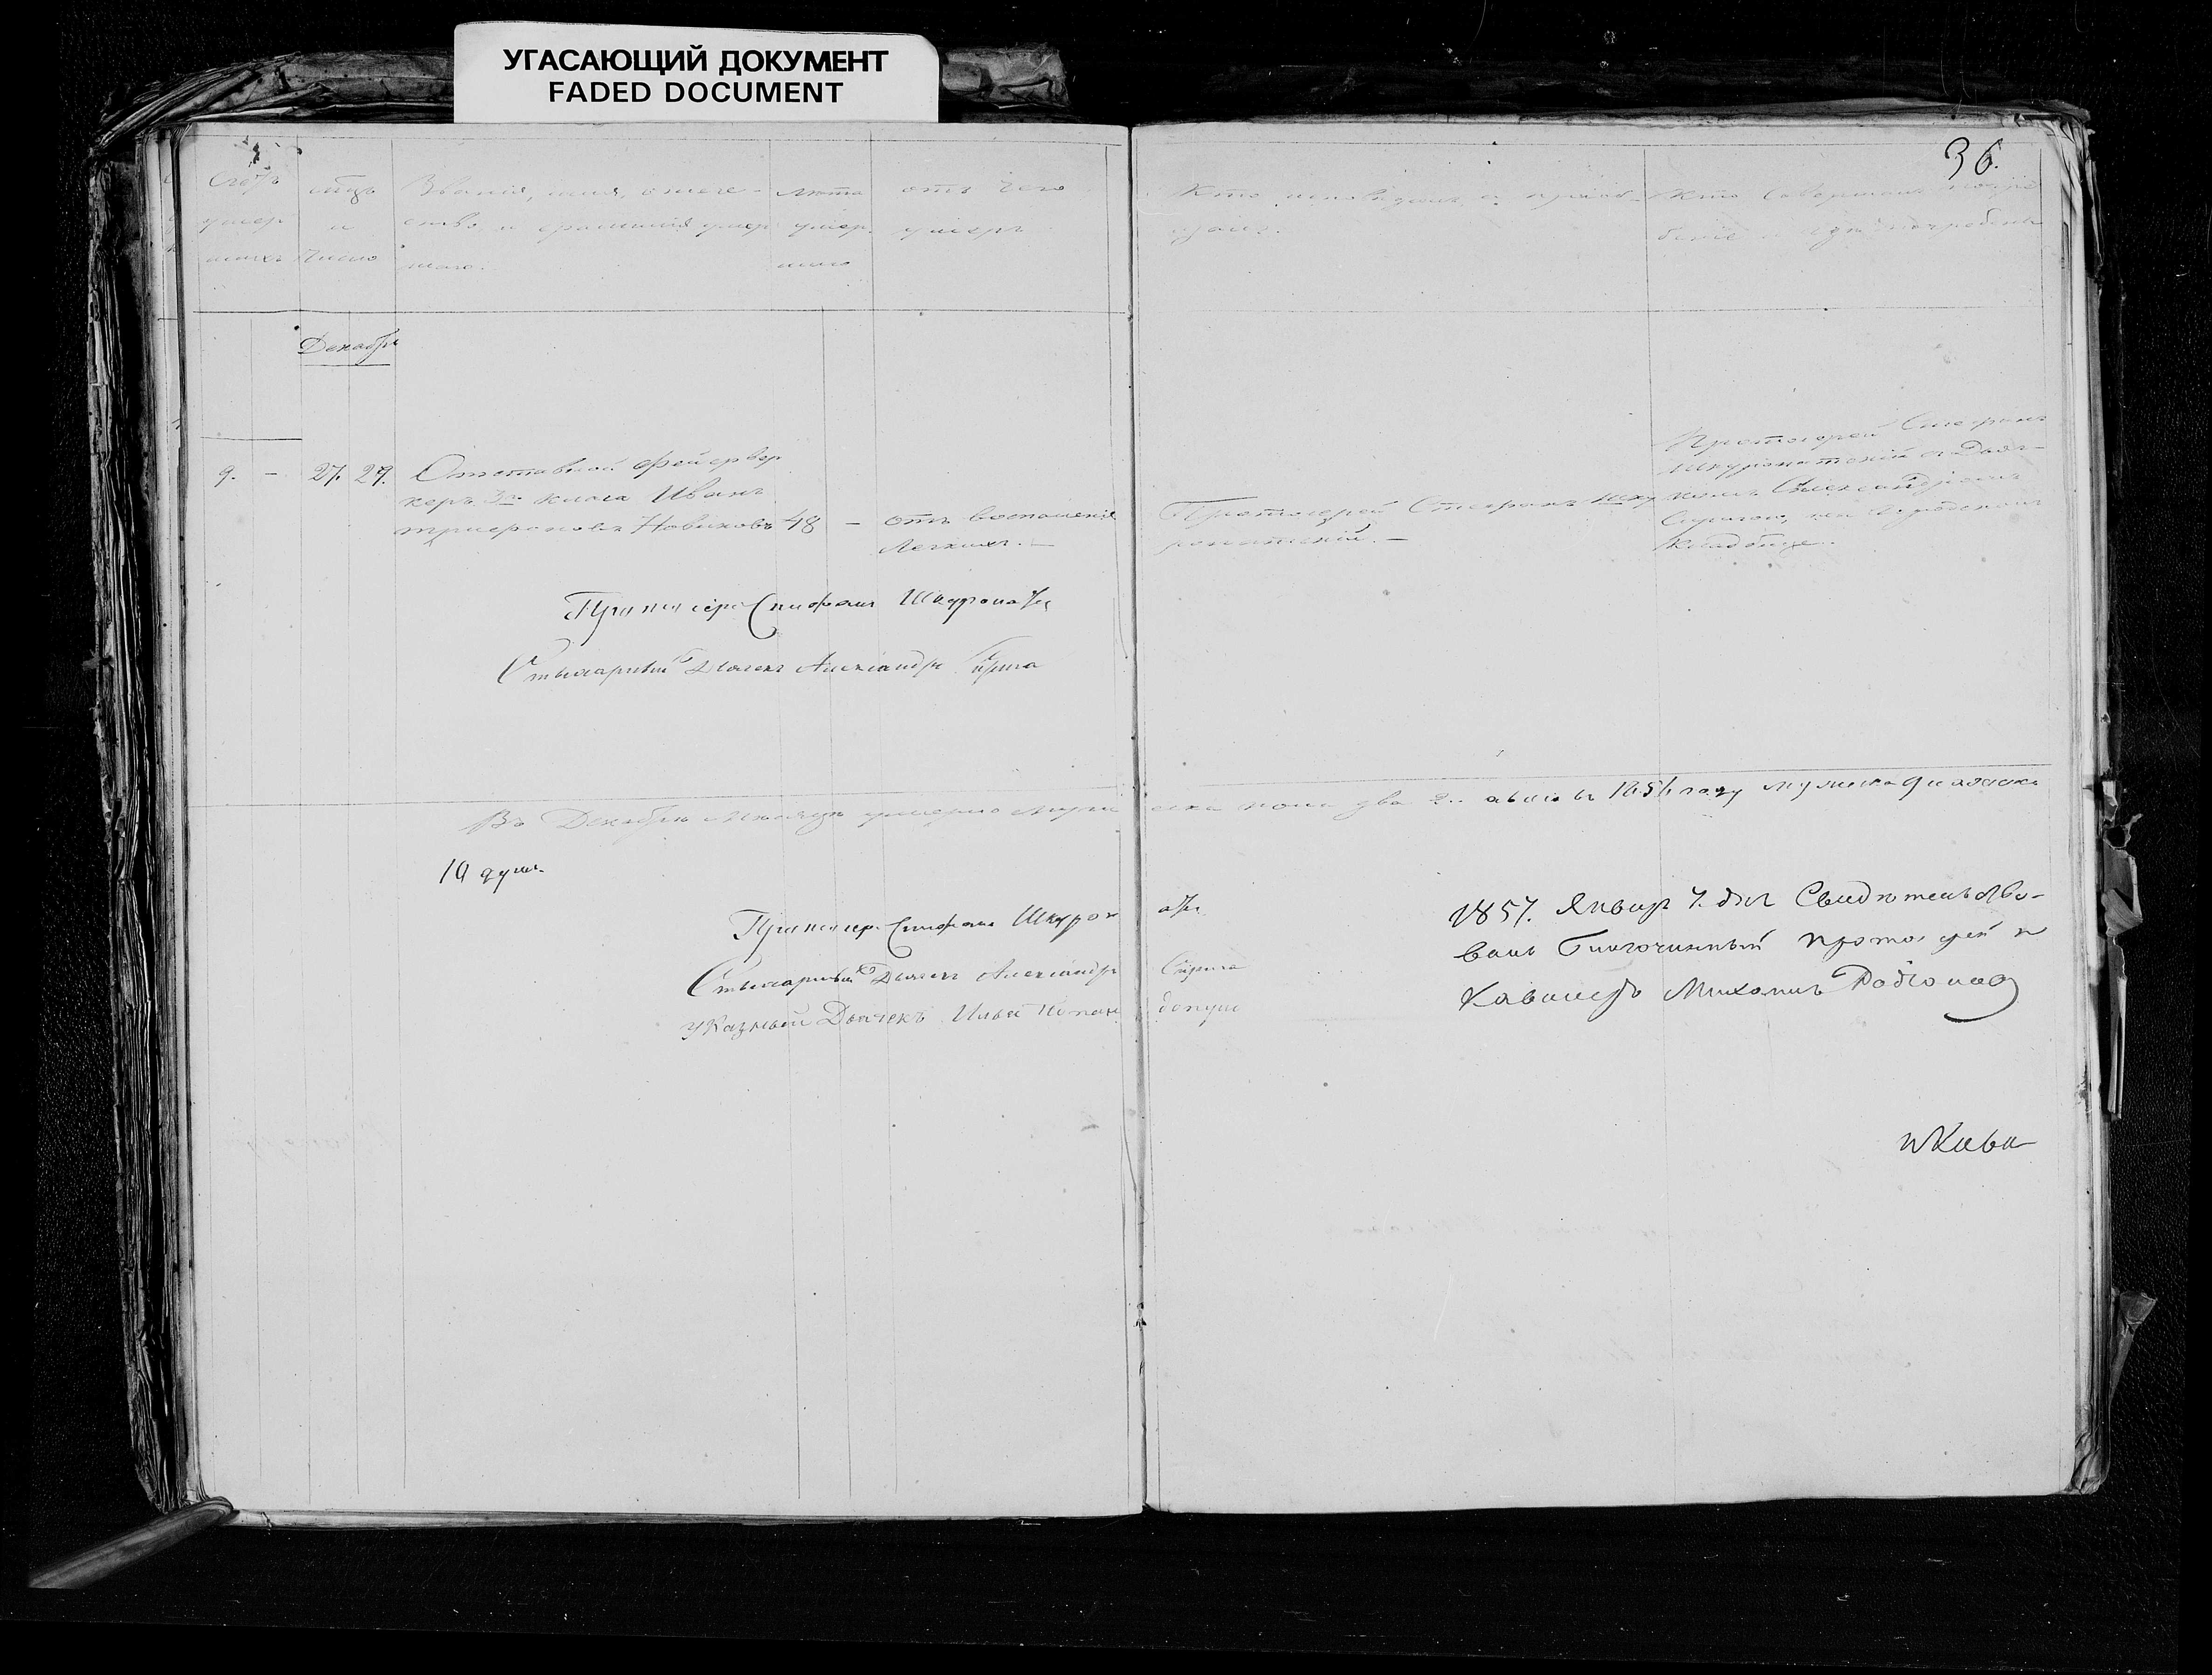 УГАСАЮЩИЙ ДОКУМЕНТ
FADED DOCUMENT
36.
Счетъ умер шихъ
мѣсяцъ и Число
Званія, имя, отече-
ство и фамилія умер
шаго.
лѣта умер. шаго
отъ чего
умеръ
Кто исповѣдалъ и
Кто совершалъ погре
беніе и гдѣ погребены
Декабрь
9. - 27. 29.
Отставной фейервер
керъ 3го класа Иванъ
трифоновъ Новиковъ 48 -
отъ воспаленія
Легкихъ. -
Протоіерей Стефанъ Шку
ропатскій. -
Протоіерей Стефанъ
Шкуропатскій съ Дьяч-
комъ Александромъ
на городскомъ
кладбище.
Протоіерей Стефанъ Шкуропатс
Стихарный Дьячекъ Александръ
Въ Декабрѣ Мѣсяцѣ умерло мужескаго пола два 2. а всего въ 1856 году мужеска 9 и женска
10 душъ.
Протоіерей Стефанъ Шкуропатс
Стихарный Дьячекъ Александръ
Указный Дьячекъ Илья
1857. Января 7. дня Свидѣтельство-
валъ Благочинный протоіерей и
Кавалеръ Михаилъ
и Кава